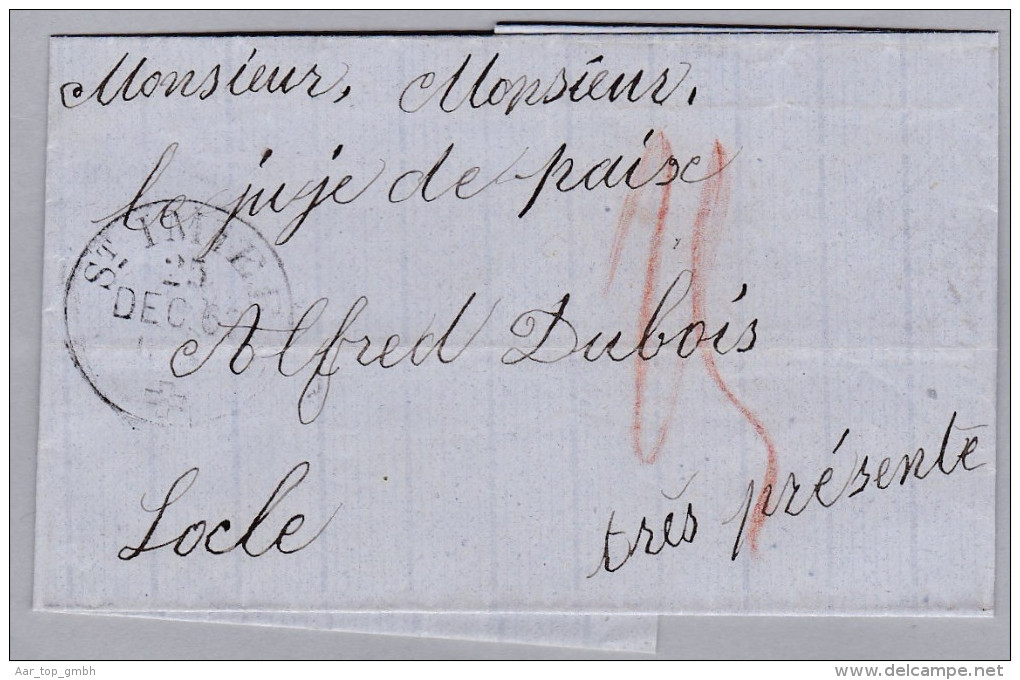 Monsieur, Monsieur,
le juge de paix
ST. IMIER
25
DEC 6
Alfred Dubois
Locle
très présente
Aar_top_gmbh
www.delcampe.net